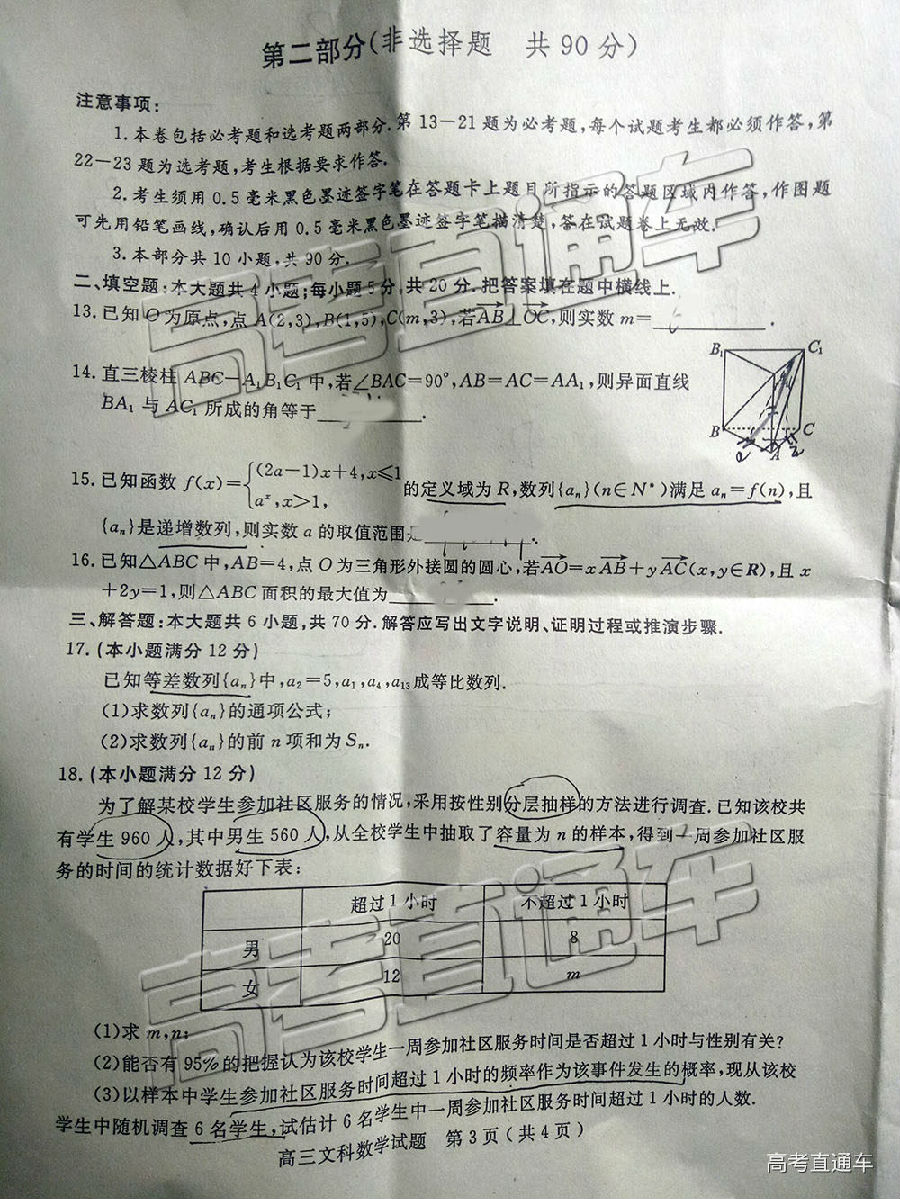 第二部分(非选择题 共90分)
注意事项:
1.本卷包括必考题和选考题两部分.第13—21题为必考题,每个试题考生都必须作答,第
22—23题为选考题,考生根据要求作答.
2.考生须用0.5毫米黑色墨迹签字笔在答题卡上题目所指示的答题区域内作答,作图题
可先用铅笔画线,确认后用0.5毫米黑色墨迹签字笔描清楚,答在试题卷上无效.
3.本部分共10小题,共90分.
二、填空题:本大题共4小题;每小题5分,共20分.把答案填在题中横线上.
13.已知O为原点,点A(2,3),B(1,5),C(m,3),若AB⊥OC,则实数m=________.
14.直三棱柱ABC-A₁B₁C₁中,若∠BAC=90°,AB=AC=AA₁,则异面直线
BA₁与AC₁所成的角等于________.
B₁ C₁
B A C
15.已知函数f(x)={(2a-1)x+4,x≤1
aˣ,x>1, 的定义域为R,数列{aₙ}(n∈N*)满足aₙ=f(n),且
{aₙ}是递增数列,则实数a的取值范围是________.
16.已知△ABC中,AB=4,点O为三角形外接圆的圆心,若AO=xAB+yAC(x,y∈R),且x
+2y=1,则△ABC面积的最大值为________.
三、解答题:本大题共6小题,共70分.解答应写出文字说明、证明过程或推演步骤.
17.(本小题满分12分)
已知等差数列{aₙ}中,a₂=5,a₁,a₄,a₁₃成等比数列.
(1)求数列{aₙ}的通项公式;
(2)求数列{aₙ}的前n项和为Sₙ.
18.(本小题满分12分)
为了解某校学生参加社区服务的情况,采用按性别分层抽样的方法进行调查.已知该校共
有学生960人,其中男生560人,从全校学生中抽取了容量为n的样本,得到一周参加社区服
务的时间的统计数据好下表:
超过1小时 不超过1小时
男 20 8
女 12 m
(1)求m,n;
(2)能否有95%的把握认为该校学生一周参加社区服务时间是否超过1小时与性别有关?
(3)以样本中学生参加社区服务时间超过1小时的频率作为该事件发生的概率,现从该校
学生中随机调查6名学生,试估计6名学生中一周参加社区服务时间超过1小时的人数.
高三文科数学试题 第3页(共4页)
高考直通车
高考直通车
高考直通车